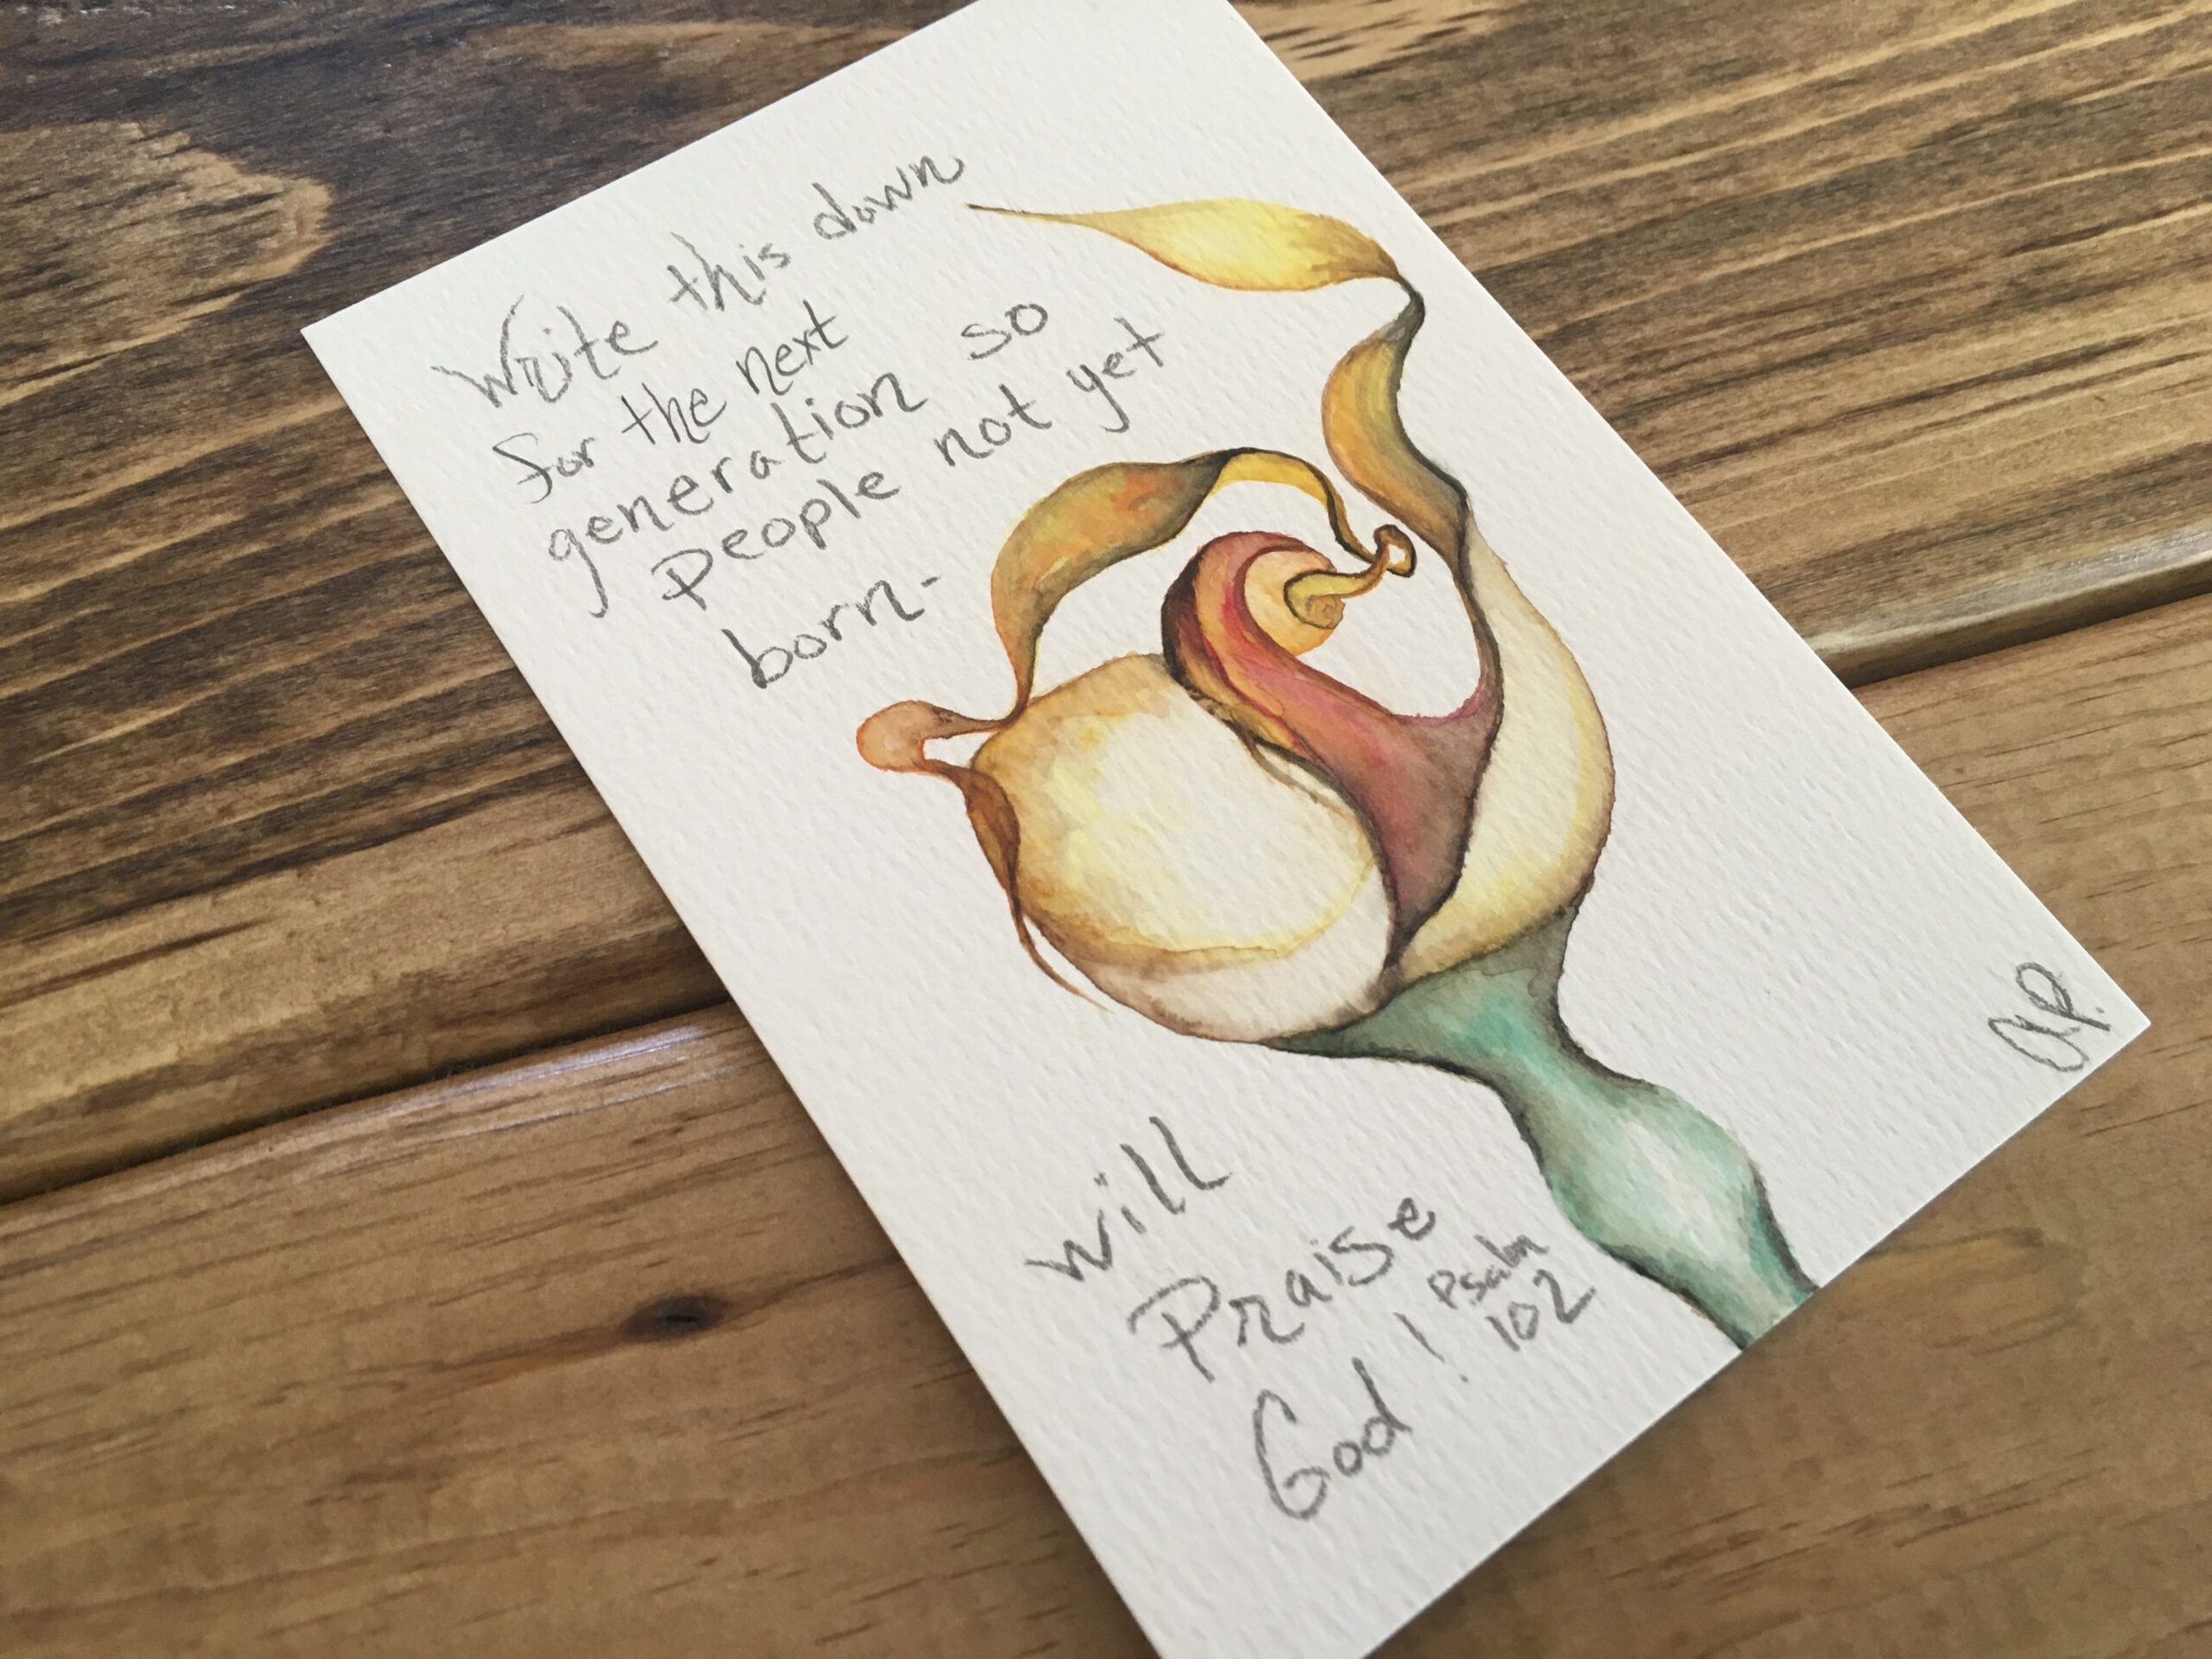 Write this down
for the next
generation so
People not yet
born-
will
Praise
God! Psalm
102